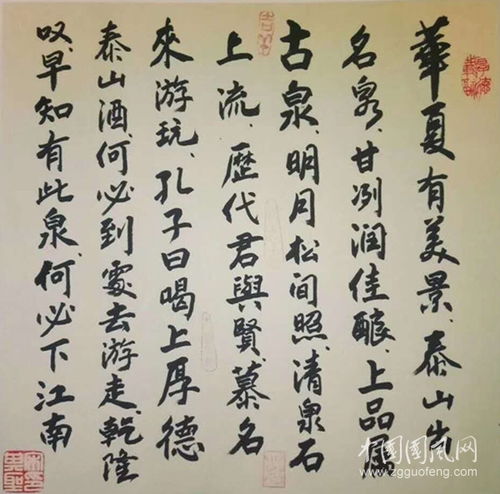 華夏有美景、泰山出
名泉、甘冽润佳酿、上品
古泉、明月松间照、清泉石
上流、歷代君與賢、慕名
來游玩、孔子曰喝上厚德
泰山酒、何必到處去游走、乾隆
叹、早知有此泉、何必下江南
中國國風网
www.zgguofeng.com